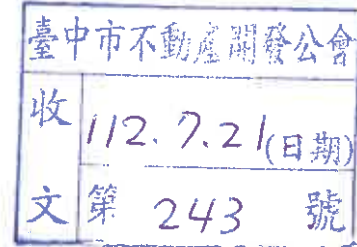 臺中市不動產開發公會
收 112.7.21(日期)
文 第 243 號